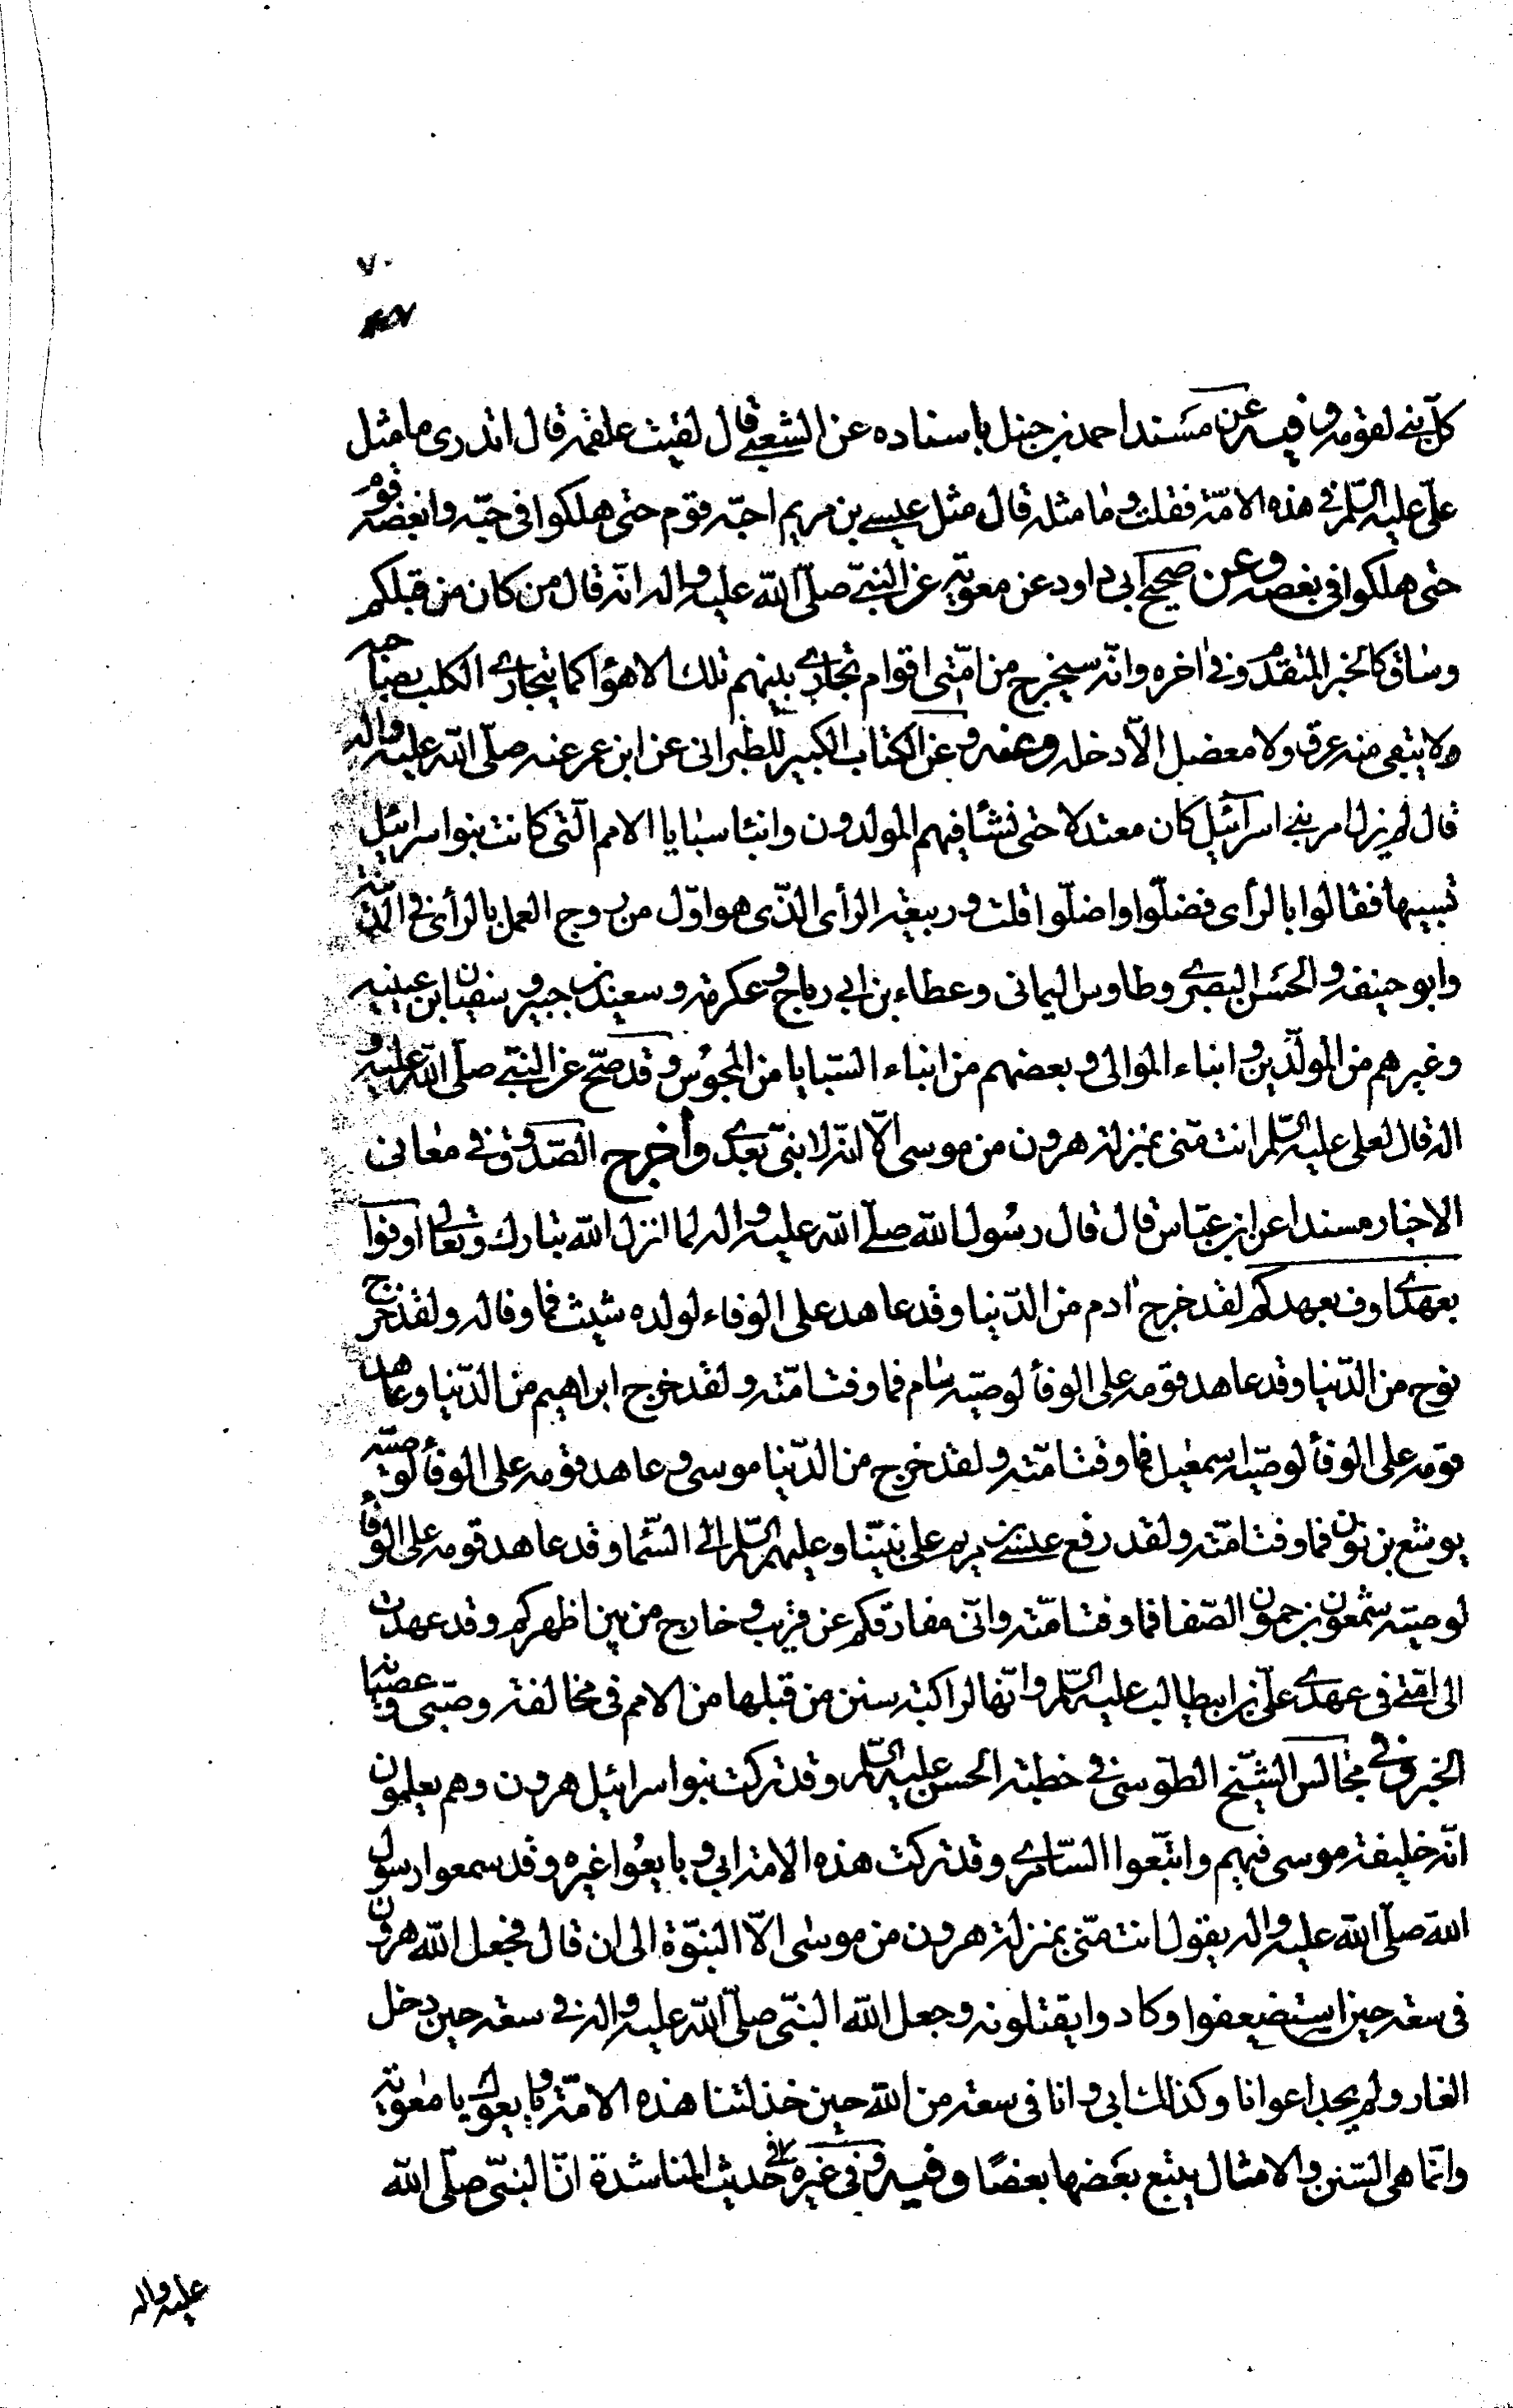 ٧٠
كل بني لقومه وفيه عن مسند احمد بن حنبل باسناده عن الشعبي قال لقيت علقمه قال اتدري ما مثل
علي عليه السلم في هذه الامة فقلت وما مثله قال مثل عيسى بن مريم احبه قوم حتى هلكوا في حبه وابغضه قوم
حتى هلكوا في بغضه وعن صحيح ابي داود عن معوية عن النبي صلى الله عليه واله انه قال من كان من قبلكم
وساق كالخبر المتقدم وفي اخره وانه سيخرج من امتي اقوام تجارى بينهم تلك الاهوآ كما يتجارى الكلب بصاحبه
ولا يبقى منه عرق ولا مفصل الا دخله وعنه وعن الكتاب الكبير للطبراني عن ابن عمر عنه صلى الله عليه واله
قال لم يزل امر بني اسرآئيل كان معتدلا حتى نشأ فيهم المولدون وابناء سبايا الامم التي كانت بنوا سرائيل
تسبيها فقالوا بالرأى فضلوا واضلوا قلت وربيعة الرأى الذي هو اول من روج العمل بالرأى في المدينة
وابو حنيفه والحسن البصري وطاوس اليماني وعطاء بن ابي رباح وعكرمة وسعيد بن جبير وسفيان ابن عيينه
وغيرهم من المولدين وابناء الموالي وبعضهم من ابناء السبايا من المجوس وقد صح عن النبي صلى الله عليه و
اله قال لعلي عليه السلم انت مني بمنزلة هرون من موسى الا انه لا نبي بعدي وأخرج الصدوق في معاني
الاخبار مسندا عن ابن عباس قال قال رسول الله صلى الله عليه واله لما انزل الله تبارك وتعالى اوفوا
بعهدي اوف بعهدكم لقد خرج ادم من الدنيا وقد عاهد على الوفاء لولده شيث فما وفا له ولقد خرج
نوح من الدنيا وقد عاهد قومه على الوفأ لوصيه سام فما وفت امته ولقد خرج ابراهيم من الدنيا وعاهد
قومه على الوفأ لوصيه اسمعيل فما وفت امته ولقد خرج من الدنيا موسى وعاهد قومه على الوفأ لوصيه
يوشع بن نون فما وفت امته ولقد رفع عيسى بن مريم على نبينا وعليهم السلم الى السمآ وقد عاهد قومه على الوفأ
لوصيه شمعون بن حمون الصفا فما وفت امته واني مفارقكم عن قريب وخارج من بين اظهركم وقد عهدت
الى امتي في عهدي علي بن ابيطالب عليه السلم وانها لراكبة سنن من قبلها من الامم في مخالفة وصيي وعصيانه
الخبر وفي مجالس الشيخ الطوسي في خطبة الحسن عليه السلم وقد تركت بنوا سرائيل هرون وهم يعلمون
انه خليفة موسى فيهم واتبعوا السامري وقد تركت هذه الامة ابي وبايعوا غيره وقد سمعوا رسول
الله صلى الله عليه واله يقول انت مني بمنزلة هرون من موسى الا النبوة الى ان قال فجعل الله هرون
في سعة حين استضعفوا وكادوا يقتلونه وجعل الله النبي صلى الله عليه واله في سعة حين دخل
الغار ولم يجد اعوانا وكذلك ابي وانا في سعة من الله حين خذلتنا هذه الامة وبايعوك يا معوية
وانما هي السنن والامثال يتبع بعضها بعضا وفيه وفي غيره في حديث المناشدة ان النبي صلى الله
عليه واله